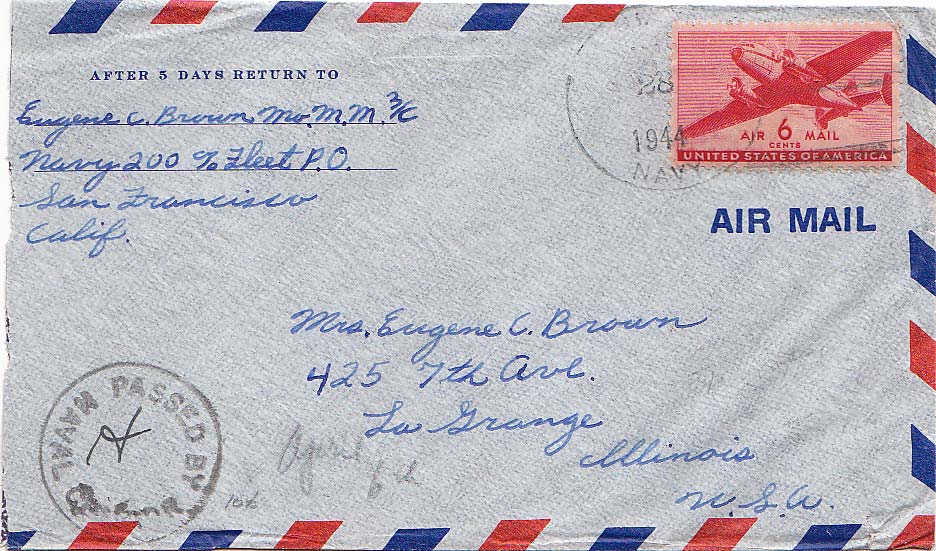 AFTER 5 DAYS RETURN TO
Eugene C. Brown, Mo.M.M. 2/C
Navy 200 % Fleet P.O.
San Francisco
Calif.
28
1944
NAVY
AIR 6 MAIL
CENTS
UNITED STATES OF AMERICA
AIR MAIL
Mrs. Eugene C. Brown
425 7th Ave.
La Grange
Illinois
U.S.A.
PASSED BY
NAVAL
April
6th